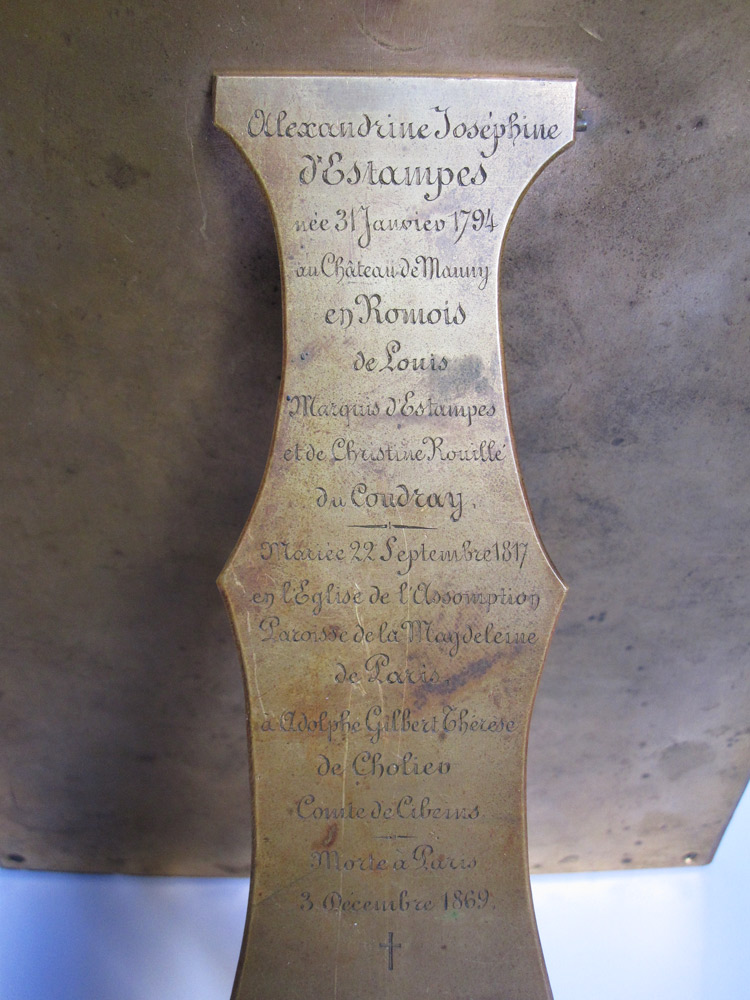 Alexandrine Joséphine
d'Estampes
née 31 Janvier 1794
au Château de Mauny
en Romois
de Louis
Marquis d'Estampes
et de Christine Rouillé
du Coudray.
Mariée 22 Septembre 1817
en l'Eglise de l'Assomption
Paroisse de la Maydeleine
de Paris.
à Adolphe Gilbert Thérèse
de Cholier
Comte de Cibeins
Morte à Paris
3 Décembre 1869.